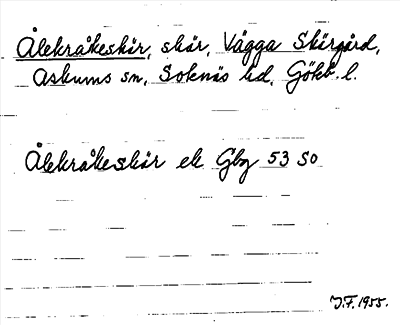 Ålekråkeskär, skär, Vägga Skärgård,
Askums sn, Sotenäs hd, Götb. l.
Ålekråkeskär ek Gbg 53 SO
J.F. 1955.